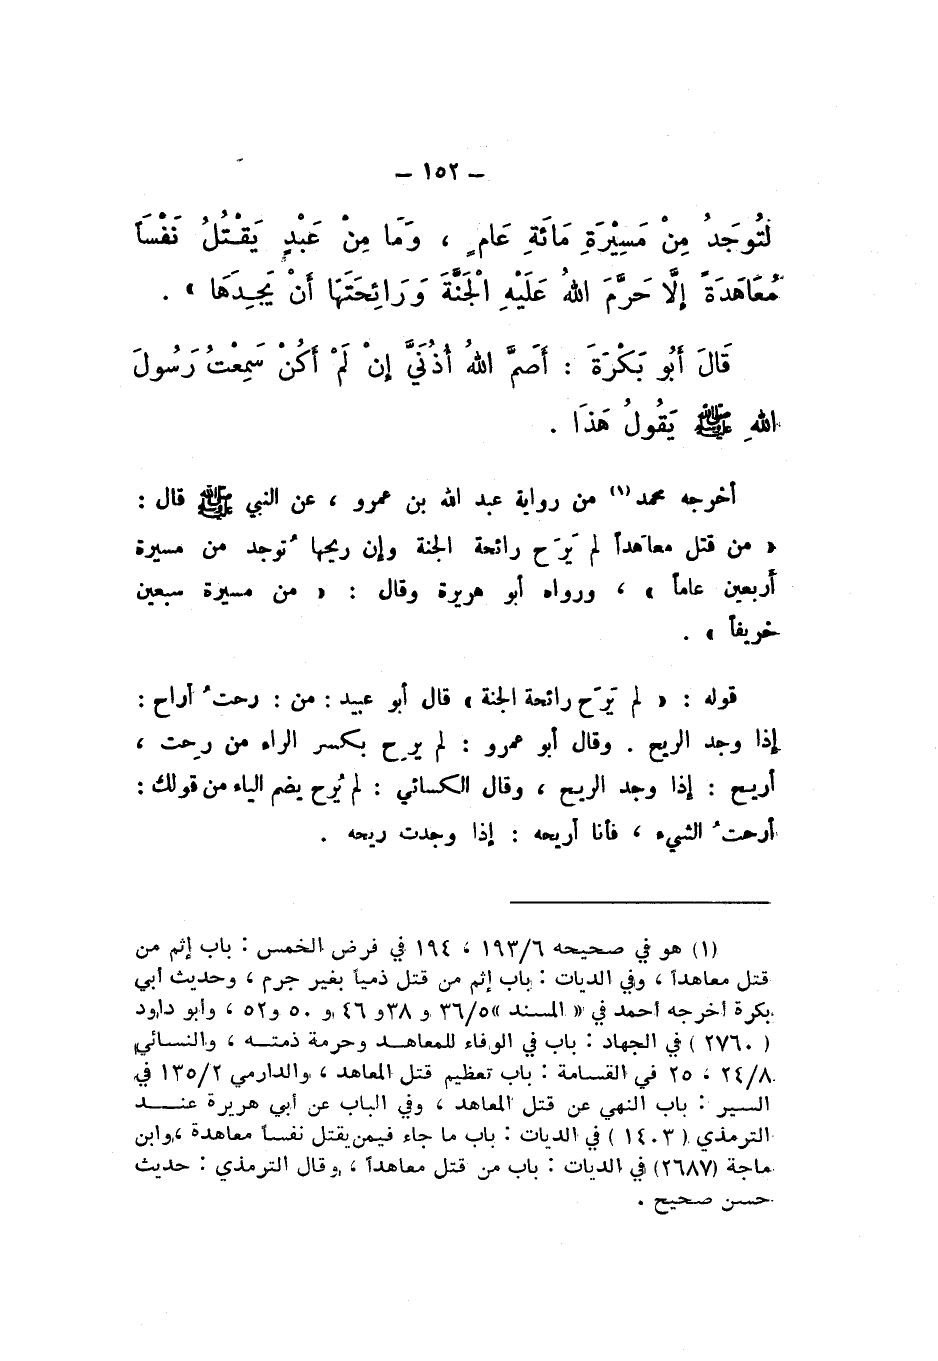 – ١٥٢ –
لَتُوجَدُ مِنْ مَسِيْرَةِ مَائَةِ عَامٍ ، وَمَا مِنْ عَبْدٍ يَقْتُلُ نَفْسَاً
مُعَاهَدَةً إلَّا حَرَّمَ اللهُ عَلَيْهِ الْجَنَّةَ وَرَائِحَتَهَا أَنْ يَجِدَهَا » .
قَالَ أَبُو بَكْرَةَ : أَصَمَّ اللهُ أُذُنَيَّ إِنْ لَمْ أَكُنْ سَمِعْتُ رَسُولَ
اللهِ ﷺ يَقُولُ هَذَا .
أخرجه محمد (١) من رواية عبد الله بن عمرو ، عن النبي ﷺ قال :
« من قتل معاهَداً لم يَرَح رائحة الجنة وإن ريحها تُوجد من مسيرة
أَربعين عاماً » ، ورواه أبو هريرة وقال : « من مسيرة سبعين
خريفاً » .
قوله : « لم يَرَح رائحة الجنة » قال أبو عبيد : من : رحتُ أراح :
إذا وجد الريح . وقال أبو عمرو : لم يرِح بكسر الراء من رحت ،
أريح : إذا وجد الريح ، وقال الكسائي : لم يُرح بضم الياء من قولك :
أرحتُ الشيء ، فأنا أريحه : إذا وجدت ريحه .
(١) هو في صحيحه ١٩٣/٦ ، ١٩٤ في فرض الخمس : باب إثم من
قتل معاهداً ، وفي الديات : باب إثم من قتل ذمياً بغير جرم ، وحديث أبي
بكرة أخرجه أحمد في « المسند » ٣٦/٥ و ٣٨و ٤٦ و ٥٠ و٥٢ ، وأبو داود
( ٢٧٦٠ ) في الجهاد : باب في الوفاء للمعاهد وحرمة ذمته ، والنسائي
٢٤/٨ ، ٢٥ في القسامة : باب تعظيم قتل المعاهد ، والدارمي ١٣٥/٢ في
السير : باب النهي عن قتل المعاهد ، وفي الباب عن أبي هريرة عند
الترمذي ( ١٤٠٣ ) في الديات : باب ما جاء فيمن يقتل نفساً معاهدة ، وابن
ماجة (٢٦٨٧) في الديات : باب من قتل معاهداً ، وقال الترمذي : حديث
حسن صحيح .